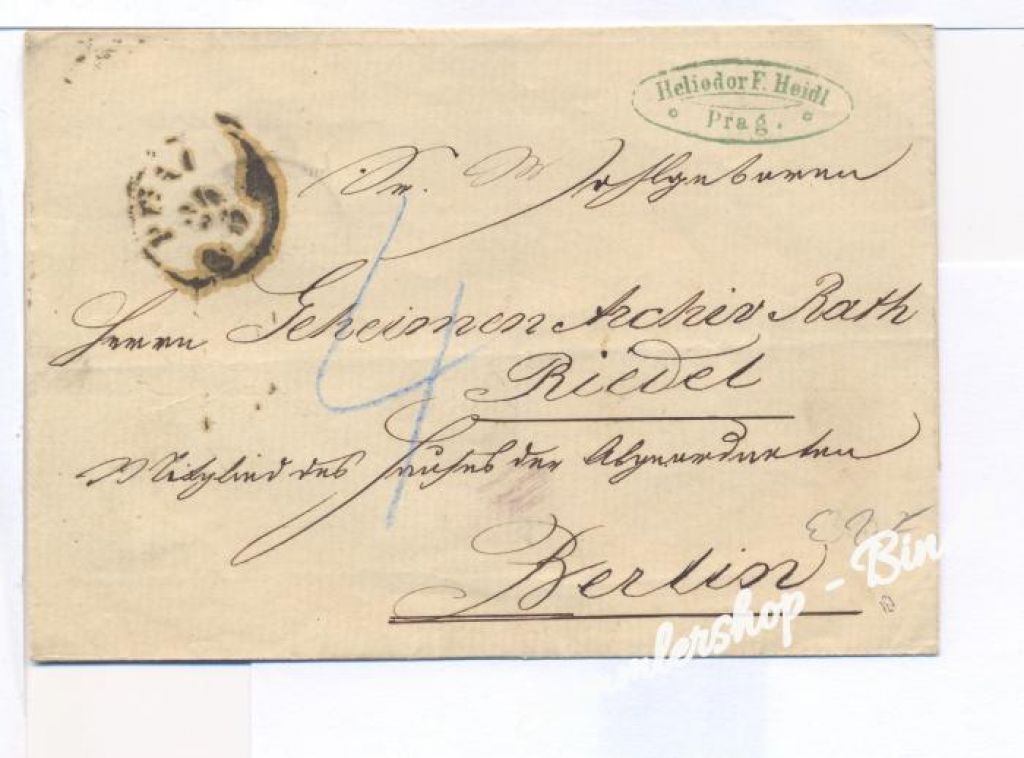 Heliodor F. Heidl
Prag.
Sr. Wohlgeboren
Herrn Geheimen Archiv Rath
Riedel
Mitglied des Hauses der Abgeordneten
Berlin
4
lershop - Bin